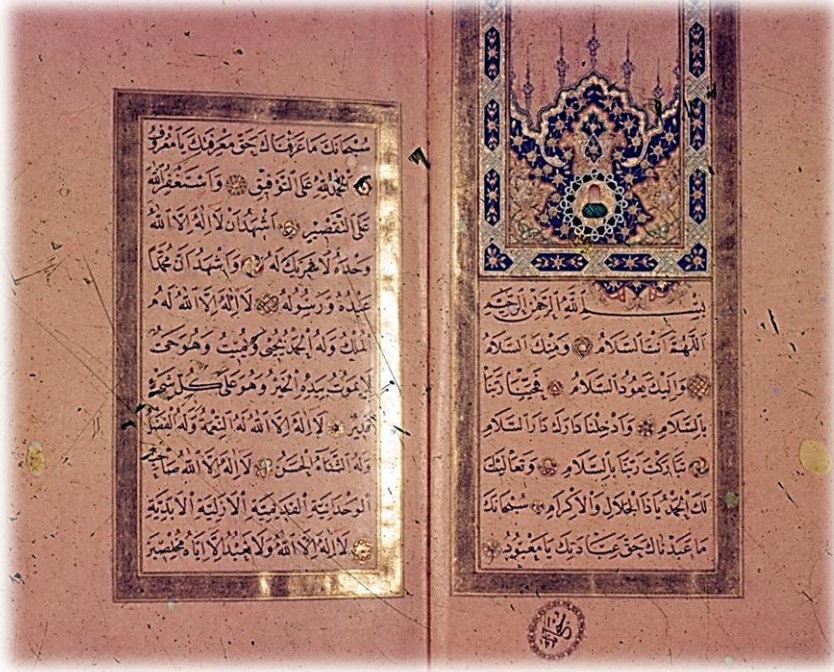 بِسْمِ اللهِ الرَّحْمٰنِ الرَّحِيْمِ
اَللّٰهُمَّ اَنْتَ السَّلَامُ وَمِنْكَ السَّلَامُ
وَاِلَيْكَ يَعُودُ السَّلَامُ فَحَيِّنَا رَبَّنَا
بِالسَّلَامِ وَاَدْخِلْنَا دَارَكَ دَارَ السَّلَامِ
تَبَارَكْتَ رَبَّنَا بِالسَّلَامِ وَتَعَالَيْتَ
لَكَ الْحَمْدُ يَا ذَا الْجَلَالِ وَالْاِكْرَامِ سُبْحَانَكَ
مَا عَبَدْنَاكَ حَقَّ عِبَادَتِكَ يَا مَعْبُودُ
سُبْحَانَكَ مَا عَرَفْنَاكَ حَقَّ مَعْرِفَتِكَ يَا مَعْرُوفُ
اَلْحَمْدُ لِلّٰهِ عَلَى التَّوْفِيْقِ وَاَسْتَغْفِرُ اللهَ
عَلَى التَّقْصِيْرِ اَشْهَدُ اَنْ لَا اِلٰهَ اِلَّا اللهُ
وَحْدَهُ لَا شَرِيْكَ لَهُ وَاَشْهَدُ اَنَّ مُحَمَّدًا
عَبْدُهُ وَرَسُولُهُ لَا اِلٰهَ اِلَّا اللهُ لَهُ
الْمُلْكُ وَلَهُ الْحَمْدُ يُحْيِى وَيُمِيْتُ وَهُوَ حَىٌّ
لَا يَمُوْتُ بِيَدِهِ الْخَيْرُ وَهُوَ عَلٰى كُلِّ شَىْءٍ
قَدِيْرٌ لَا اِلٰهَ اِلَّا اللهُ لَهُ النِّعْمَةُ وَلَهُ الْفَضْلُ
وَلَهُ الثَّنَاءُ الْحَسَنُ لَا اِلٰهَ اِلَّا اللهُ صَاحِبُ
الْوَحْدَانِيَّةِ الْقَدِيْمِيَّةِ الْاَزَلِيَّةِ الْاَبَدِيَّةِ
لَا اِلٰهَ اِلَّا اللهُ وَلَا نَعْبُدُ اِلَّا اِيَّاهُ مُخْلِصِيْنَ